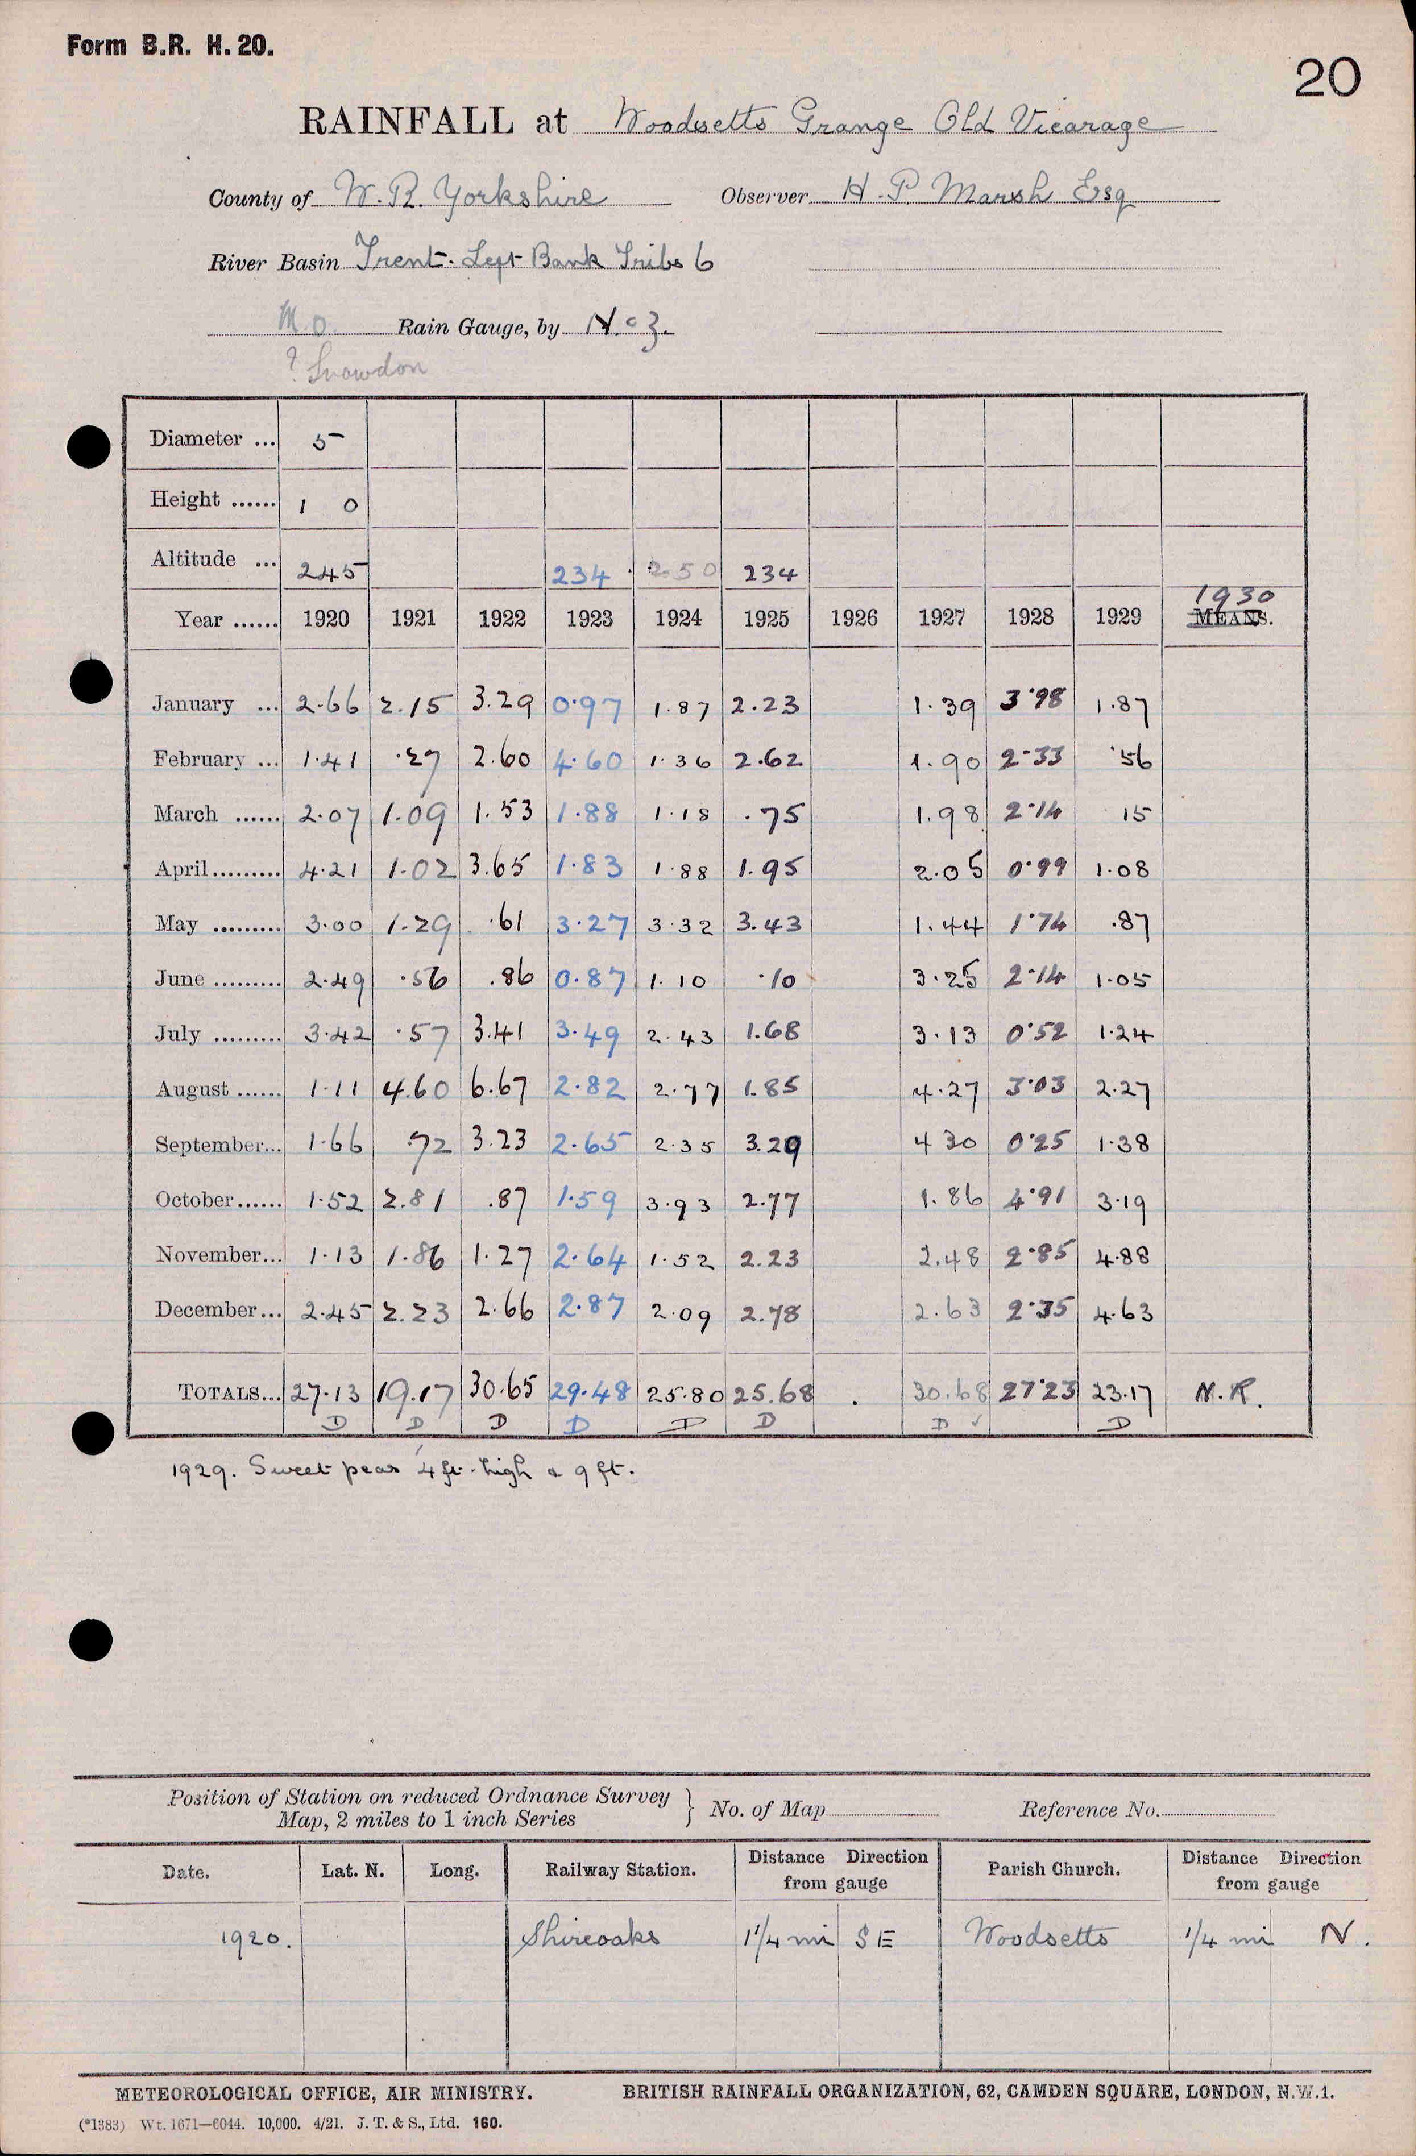 Form B.R. H. 20.
20
RAINFALL at Woodsetts Grange Old Vicarage
County of W. R. Yorkshire Observer H. P. Marsh Esq
River Basin Trent. Left Bank Tribs 6
M.O. Rain Gauge, by N.o 3.
? Snowdon
Diameter ... 5
Height ...... 1 0
Altitude ... 245 234 250 234
1930
Year ...... 1920 1921 1922 1923 1924 1925 1926 1927 1928 1929 MEANS.
January ... 2.66 2.15 3.29 0.97 1.87 2.23 1.39 3.98 1.87
February ... 1.41 .27 2.60 4.60 1.36 2.62 1.90 2.33 .56
March ...... 2.07 1.09 1.53 1.88 1.18 .75 1.98 2.14 15
April ......... 4.21 1.02 3.65 1.83 1.88 1.95 2.05 0.99 1.08
May ......... 3.00 1.29 .61 3.27 3.32 3.43 1.44 1.74 .87
June ......... 2.49 .56 .86 0.87 1.10 .10 3.25 2.14 1.05
July ......... 3.42 .57 3.41 3.49 2.43 1.68 3.13 0.52 1.24
August ...... 1.11 4.60 6.67 2.82 2.77 1.85 4.27 3.03 2.27
September... 1.66 .72 3.23 2.65 2.35 3.29 4 30 0.25 1.38
October...... 1.52 2.81 .87 1.59 3.93 2.77 1.86 4.91 3.19
November... 1.13 1.86 1.27 2.64 1.52 2.23 2.48 2.85 4.88
December... 2.45 2.23 2.66 2.87 2.09 2.78 2.63 2.35 4.63
TOTALS... 27.13 19.17 30.65 29.48 25.80 25.68 . 30.68 27.23 23.17 N.R.
D D D D D D D ✓ D
1929. Sweet peas 4 ft. high & 9 ft.
Position of Station on reduced Ordnance Survey
Map, 2 miles to 1 inch Series } No. of Map Reference No.
Date. Lat. N. Long. Railway Station. Distance Direction from gauge Parish Church. Distance Direction from gauge
1920. Shireoaks 1 1/4 mi SE Woodsetts 1/4 mi N.
METEOROLOGICAL OFFICE, AIR MINISTRY. BRITISH RAINFALL ORGANIZATION, 62, CAMDEN SQUARE, LONDON, N.W.1.
(*1383) Wt. 1671—6044. 10,000. 4/21. J. T. & S., Ltd. 160.